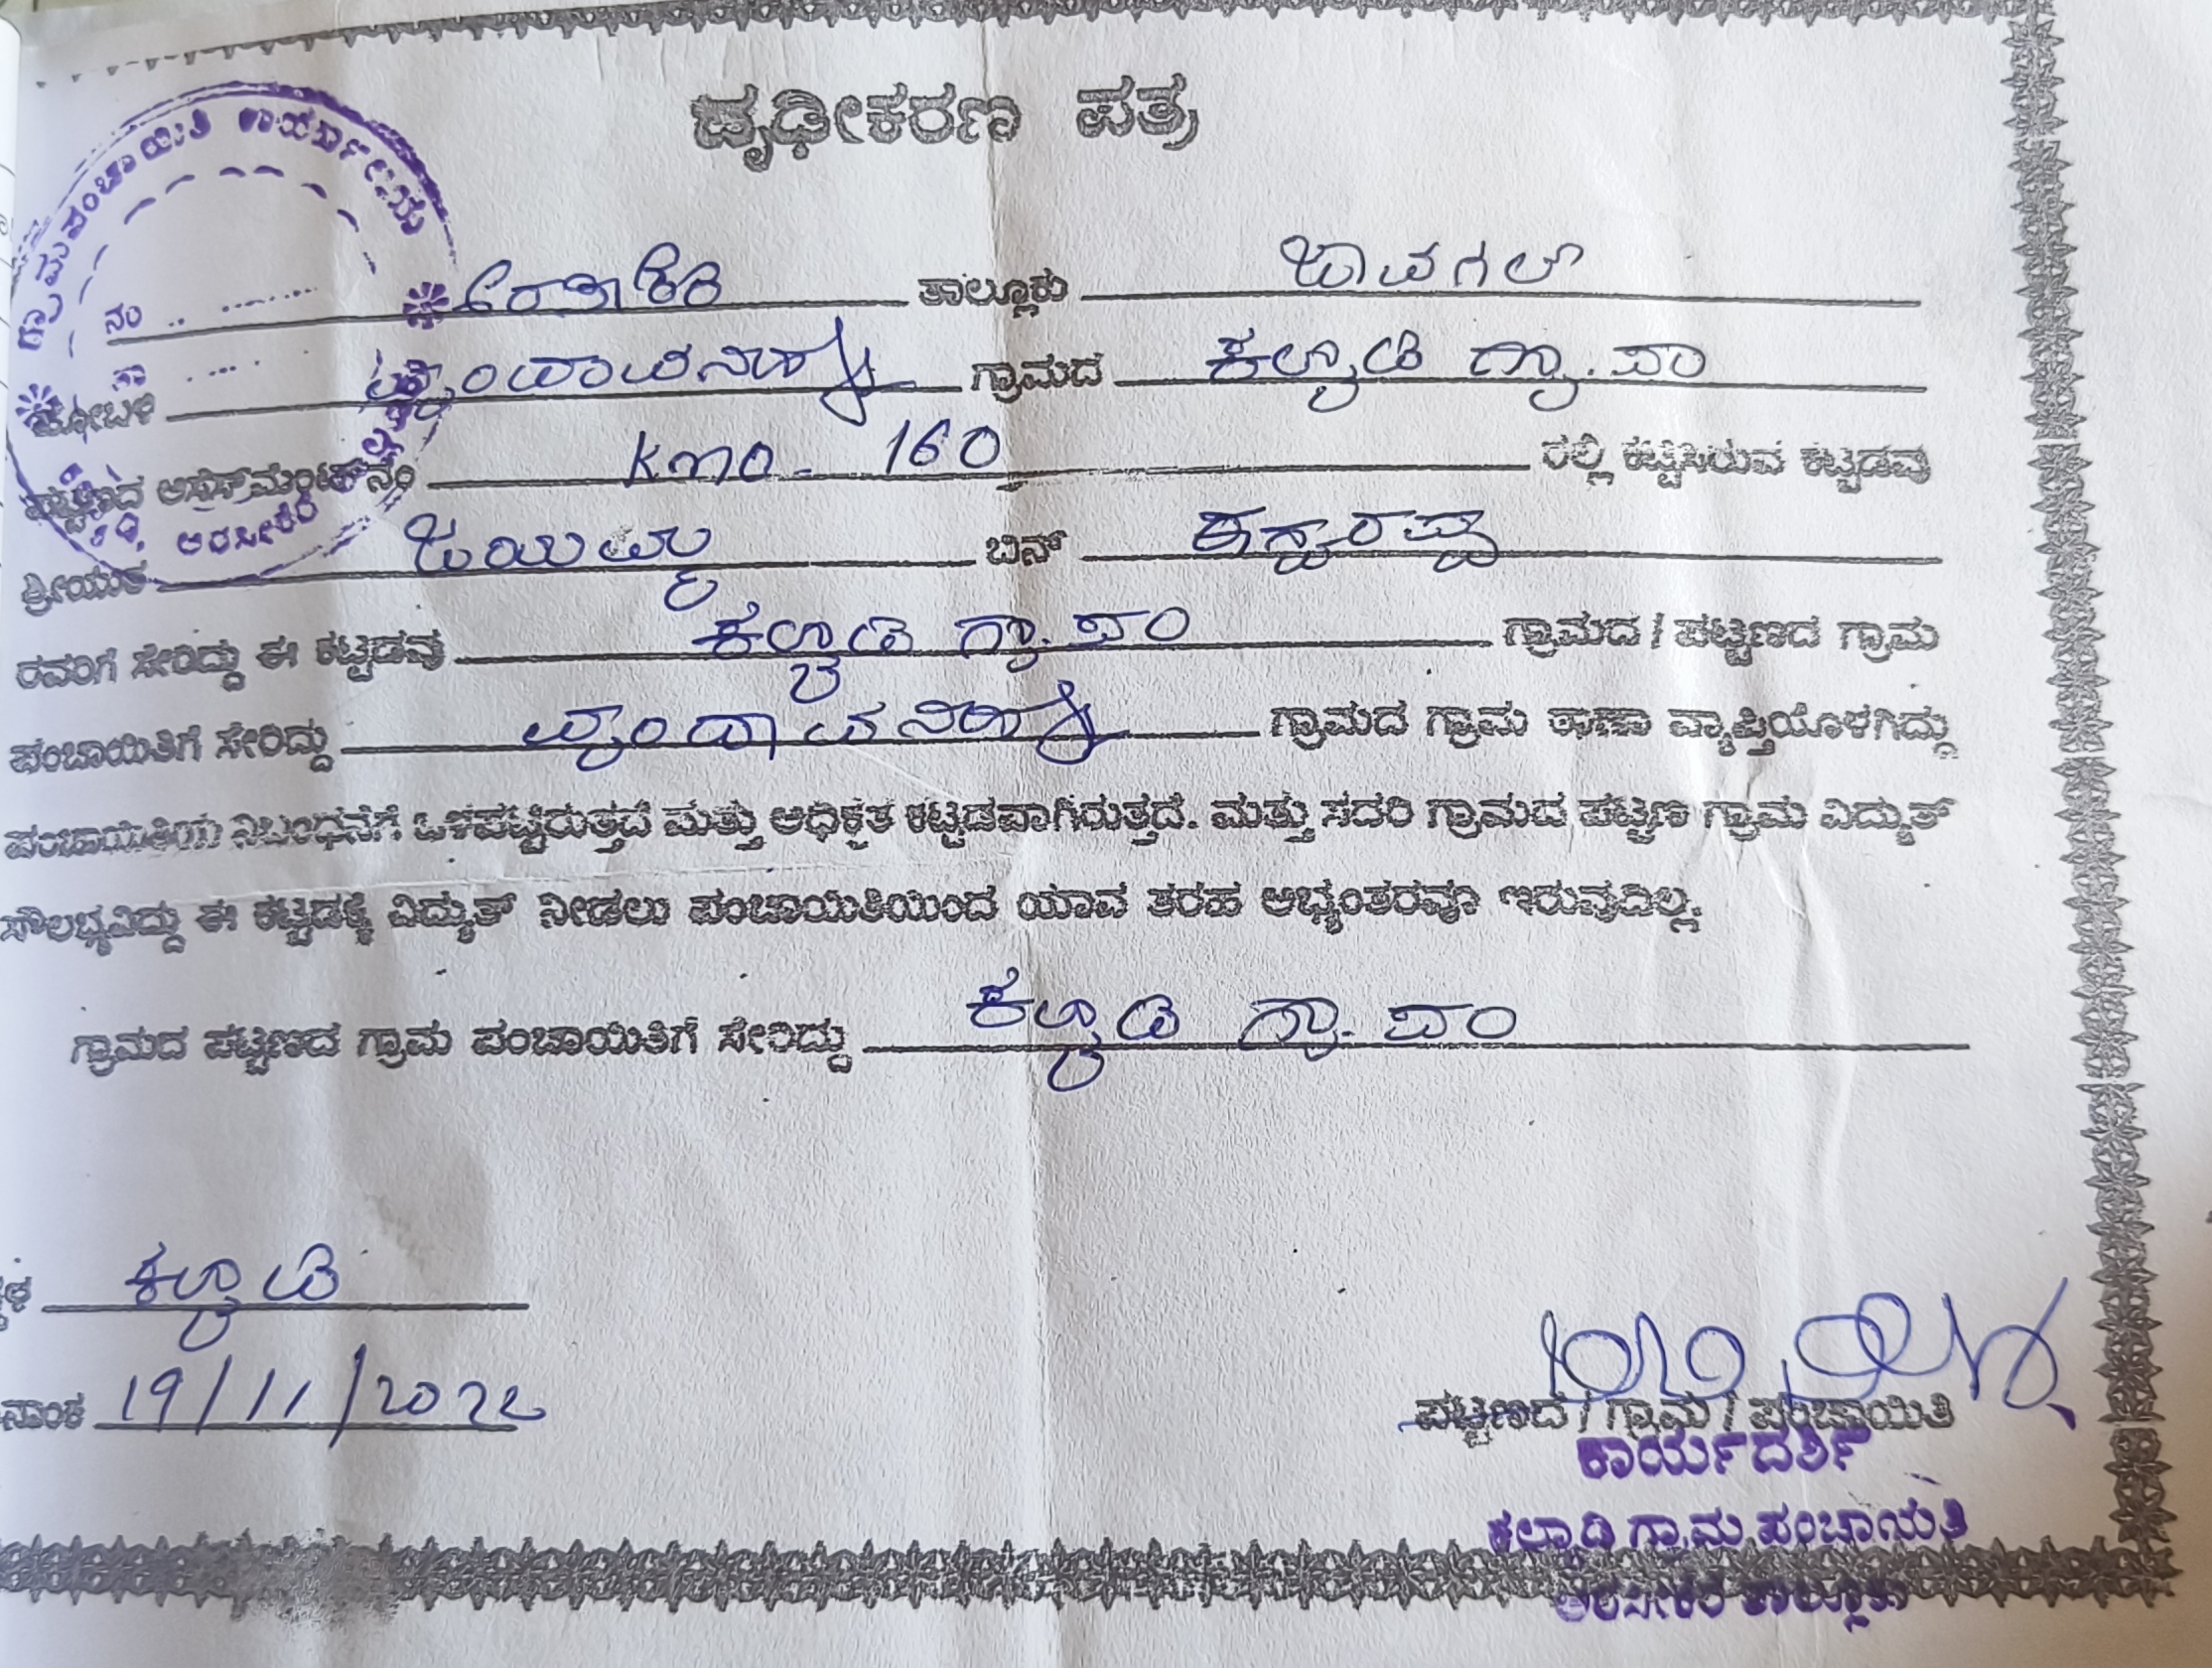 ದೃಢೀಕರಣ ಪತ್ರ
ಗ್ರಾಮ ಪಂಚಾಯಿತಿ ಕಾರ್ಯಾಲಯ
ನಂ .. ........
ಅರಸೀಕೆರೆ
ಅರಸೀಕೆರೆ ತಾಲ್ಲೂಕು ಜಾವಗಲ್
ಹೋಬಳಿ ಗ್ರಾಮದ ಕಲ್ಯಾಡಿ ಗ್ರಾ. ಪಂ
ಪಟ್ಟಣದ ಅಸೆಸ್‌ಮೆಂಟ್ ನಂ kno - 160 ರಲ್ಲಿ ಕಟ್ಟಿಸಿರುವ ಕಟ್ಟಡವು
ಶ್ರೀಯುತ ಜಯಮ್ಮ ಬಿನ್ ಈಶ್ವರಪ್ಪ
ರವರಿಗೆ ಸೇರಿದ್ದು ಈ ಕಟ್ಟಡವು ಕಲ್ಯಾಡಿ ಗ್ರಾ. ಪಂ ಗ್ರಾಮದ / ಪಟ್ಟಣದ ಗ್ರಾಮ
ಪಂಚಾಯಿತಿಗೆ ಸೇರಿದ್ದು ಗ್ರಾಮದ ಗ್ರಾಮ ಠಾಣಾ ವ್ಯಾಪ್ತಿಯೊಳಗಿದ್ದು
ಪಂಚಾಯಿತಿಯ ನಿಬಂಧನೆಗೆ ಒಳಪಟ್ಟಿರುತ್ತದೆ ಮತ್ತು ಅಧಿಕೃತ ಕಟ್ಟಡವಾಗಿರುತ್ತದೆ. ಮತ್ತು ಸದರಿ ಗ್ರಾಮದ ಪಟ್ಟಣ ಗ್ರಾಮ ವಿದ್ಯುತ್
ಸೌಲಭ್ಯವಿದ್ದು ಈ ಕಟ್ಟಡಕ್ಕೆ ವಿದ್ಯುತ್ ನೀಡಲು ಪಂಚಾಯಿತಿಯಿಂದ ಯಾವ ತರಹ ಅಭ್ಯಂತರವೂ ಇರುವುದಿಲ್ಲ.
ಗ್ರಾಮದ ಪಟ್ಟಣದ ಗ್ರಾಮ ಪಂಚಾಯಿತಿಗೆ ಸೇರಿದ್ದು ಕಲ್ಯಾಡಿ ಗ್ರಾ. ಪಂ
ಕಲ್ಯಾಡಿ
ನಾಂಕ 19/11/2022
ಪಟ್ಟಣದ / ಗ್ರಾಮ / ಪಂಚಾಯಿತಿ
ಕಾರ್ಯದರ್ಶಿ
ಕಲ್ಯಾಡಿ ಗ್ರಾಮ ಪಂಚಾಯತಿ
ಅರಸೀಕೆರೆ ತಾಲ್ಲೂಕು